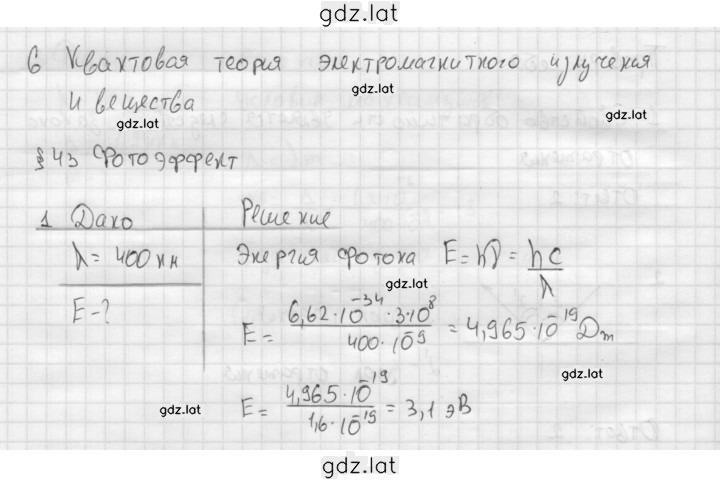 gdz.lat
6 Квантовая теория электромагнитного излучения
gdz.lat
и вещества
gdz.lat
gdz.lat
§ 43 Фотоэффект
1 Дано Решение
λ = 400 нм Энергия фотона E = hν = hc/λ
gdz.lat
E - ?
E = 6,62·10⁻³⁴·3·10⁸ / 400·10⁻⁹ = 4,965·10⁻¹⁹ Дж
gdz.lat
E = 4,965·10⁻¹⁹ / 1,6·10⁻¹⁹ = 3,1 эВ
gdz.lat
gdz.lat